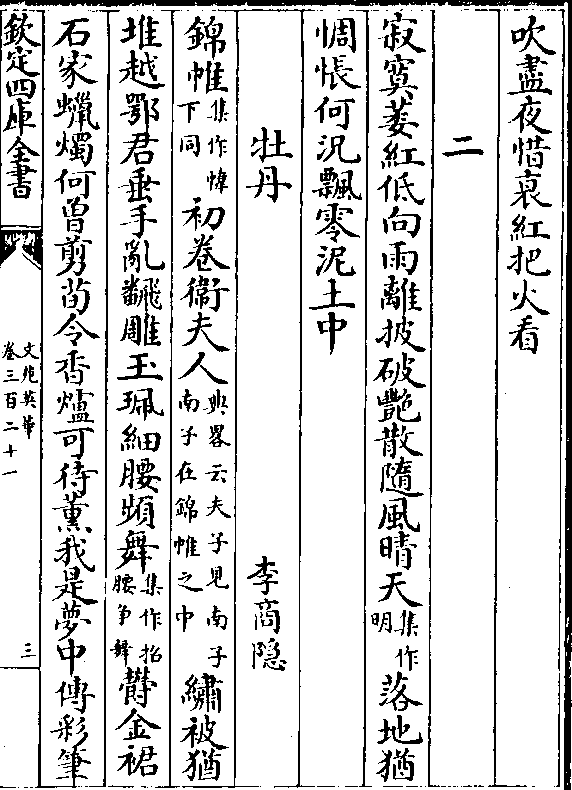 吹盡夜惜衰紅把火看
二
寂寞萎紅低向雨離披破艷散隨風晴天集作明落地猶
惆悵何況飄零泥土中
牡丹　李商隱
錦帷集作幃下同初卷衞夫人典畧云夫子見南子南子在錦帷之中繡被猶
堆越鄂君垂手亂飜雕玉珮細腰頻舞集作招腰争舞鬱金裙
石家蠟燭何曾剪荀令香爐可待薰我是夢中傳彩筆
欽定四庫全書
文苑英華
卷三百二十一
三